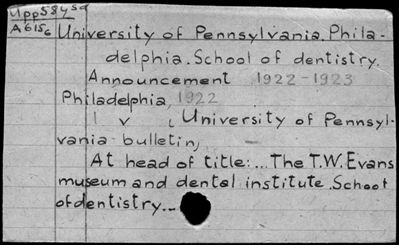 Upp584sd
A615c University of Pennsylvania. Phila-
delphia. School of dentistry.
Announcement 1922-1923
Philadelphia, 1922
v. (University of Pennsyl-
vania bulletin,
At head of title:... The T.W. Evans
museum and dental institute. School
of dentistry...